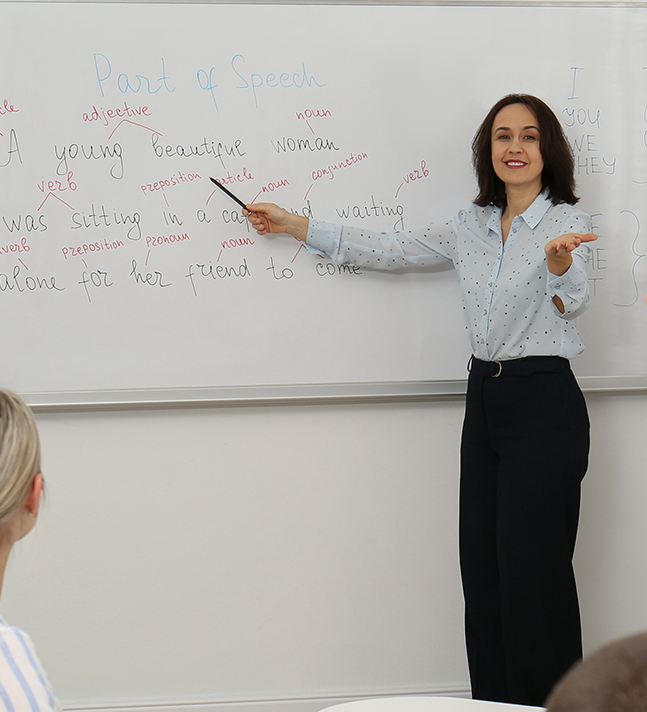 Part of Speech
adjective noun
A young beautiful woman
verb preposition article noun conjunction verb
was sitting in a and waiting
preposition pronoun noun
alone for her friend to come
I
YOU
WE
THEY